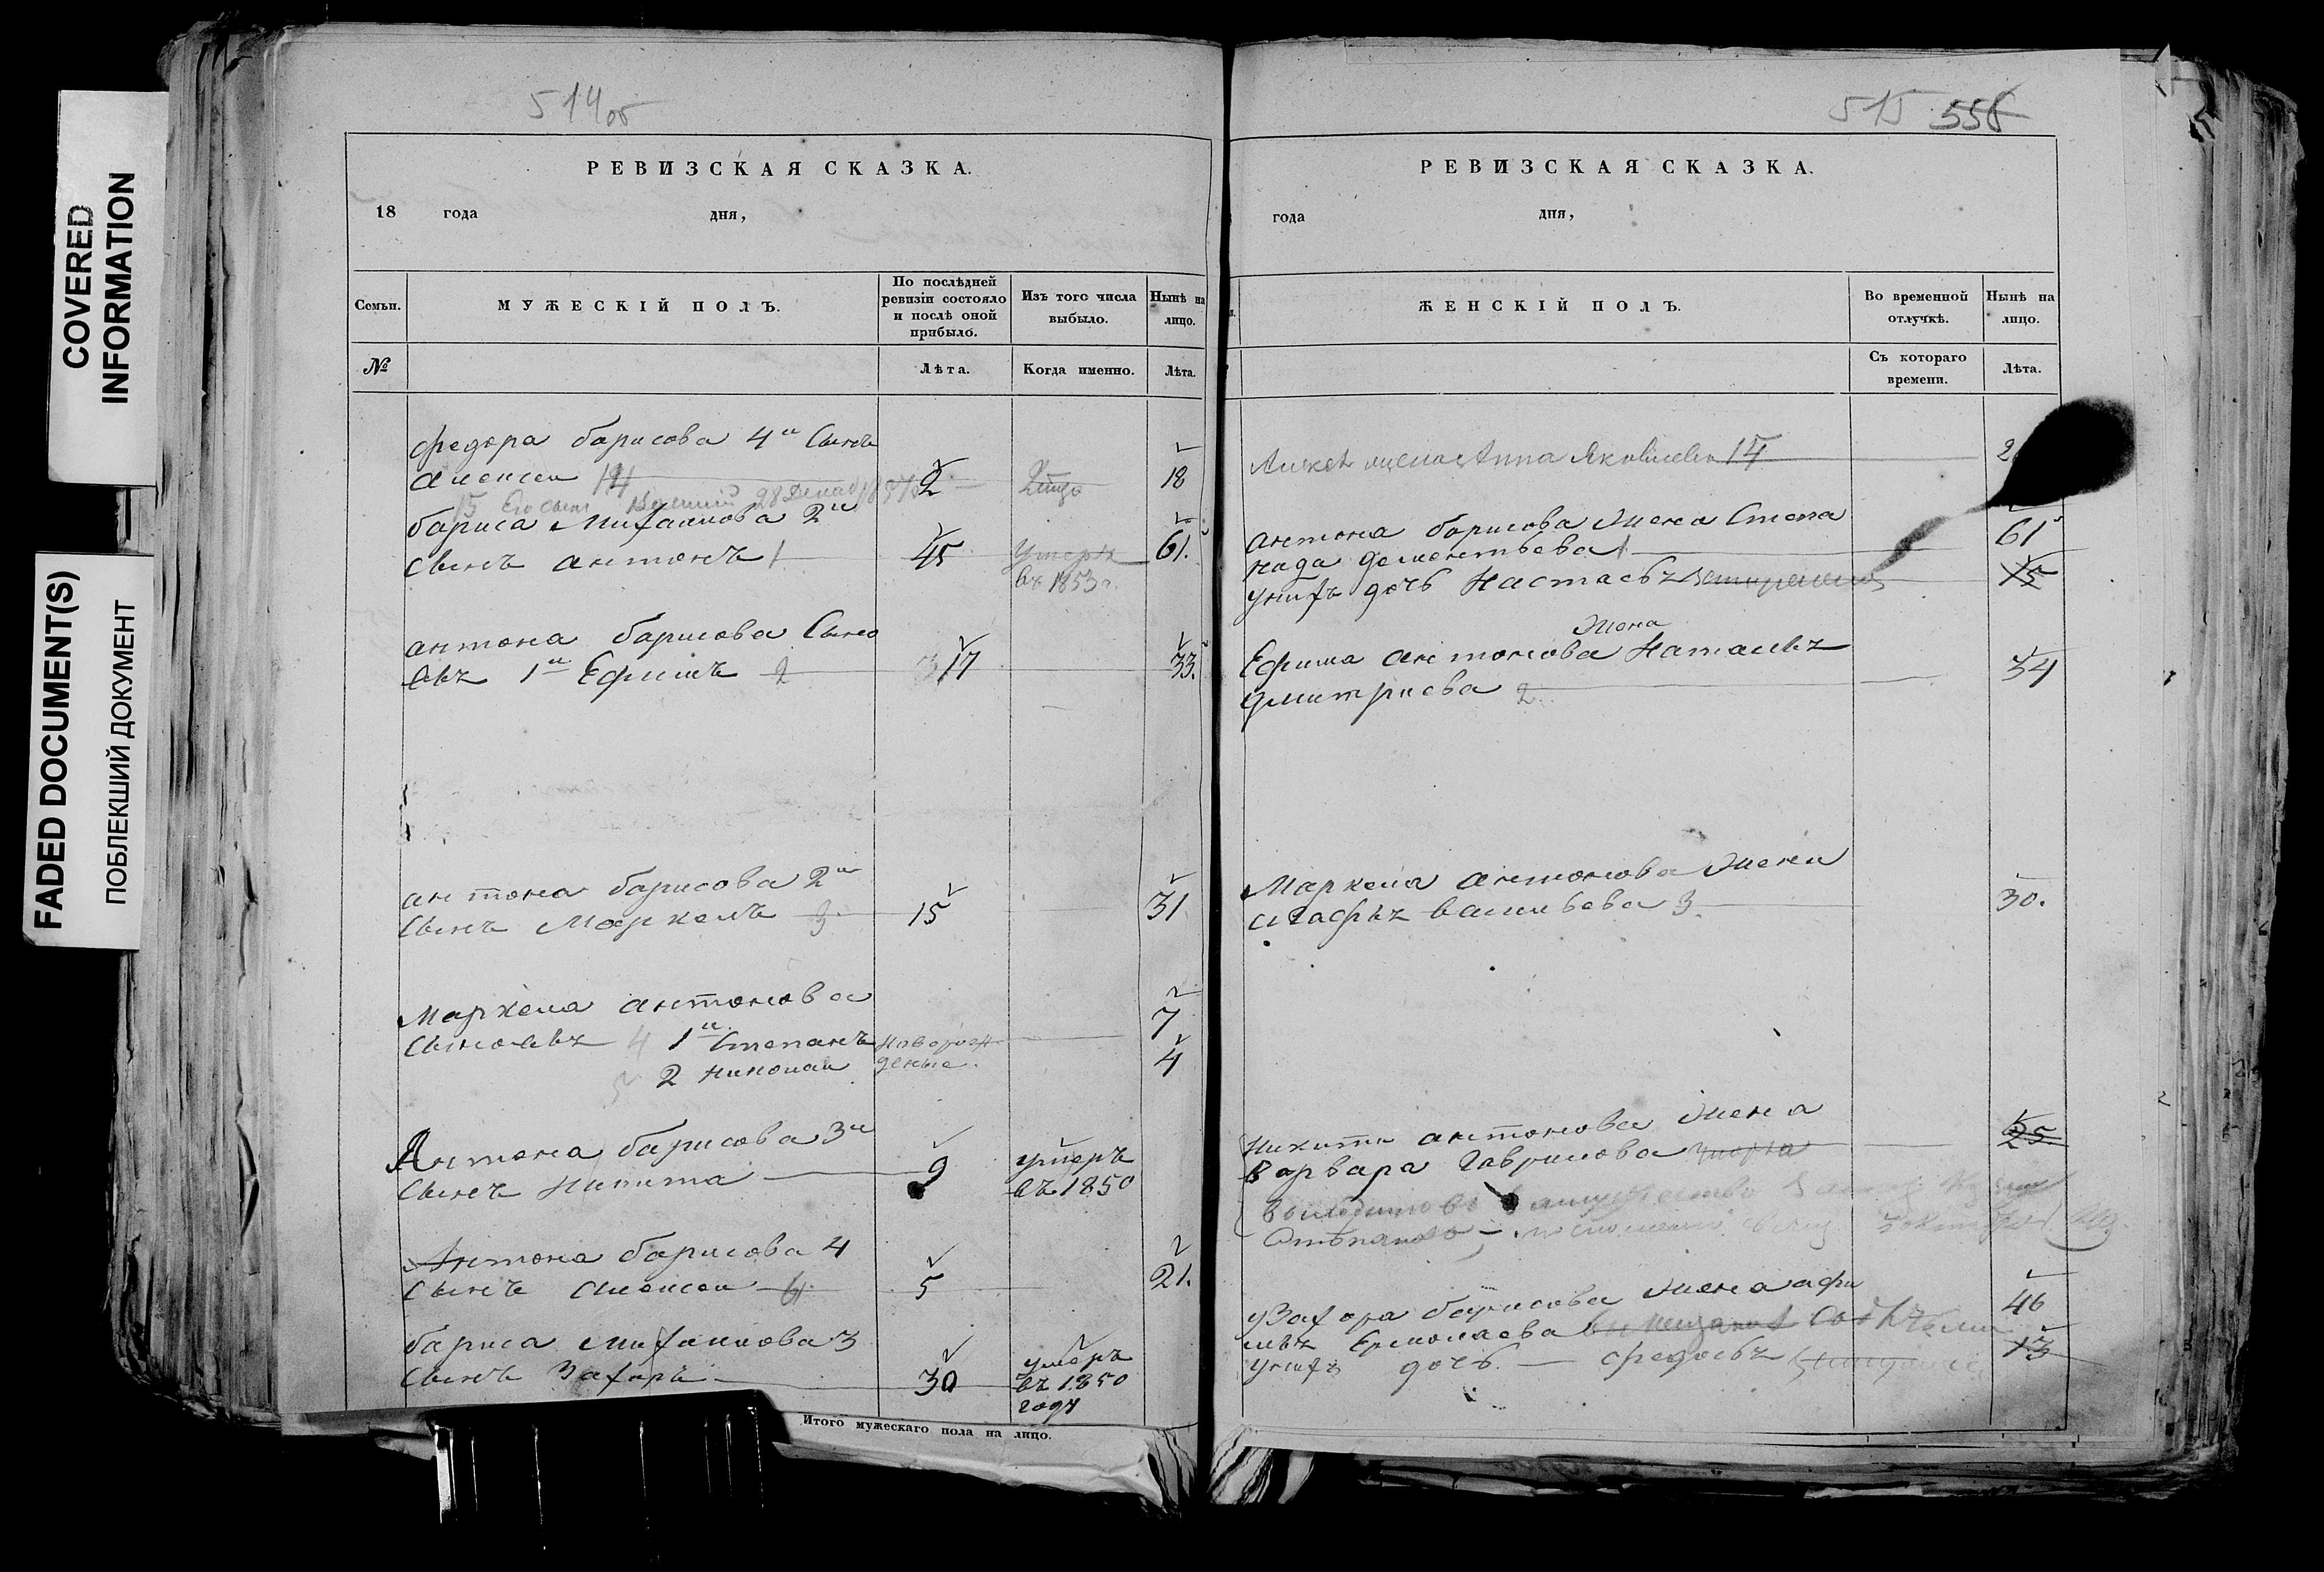 COVERED
INFORMATION
FADED DOCUMENT(S)
ПОБЛЕКШИЙ ДОКУМЕНТ
514 об
РЕВИЗСКАЯ СКАЗКА.
18 года дня,
Семьи. МУЖЕСКІЙ ПОЛЪ. По послѣдней ревизіи состояло и послѣ оной прибыло. Изъ того числа выбыло. Нынѣ на лицо.
№ Лѣта. Когда именно. Лѣта.
федора барисова 4й Сынъ
Алексеи 14 2 18
15 Его сынъ 28 Декаб
бариса Михаилова 2й
Сынъ антонъ 1 45 Умеръ 61.
въ 1853 г.
антона барисова Сыно
вьѣ 1й Ефимъ 2 17 33.
антона барисова 2й
Сынъ Маркелъ 3. 15 31
Маркела антонова
Сыновьѣ 4 1й Степанъ новорож 7
2 николаи денные. 4
Антона барисова 3й
Сынъ Никита 9 умеръ
въ 1850
Антона барисова 4
Сынъ Алексеи 6 5 21.
бариса Михаилова 3
Сынъ Захаръ 30 умеръ
въ 1850
году
Итого мужескаго пола на лицо.
515 556
РЕВИЗСКАЯ СКАЗКА.
года дня,
ЖЕНСКІЙ ПОЛЪ. Во временной отлучкѣ. Нынѣ на лицо.
Съ котораго времени. Лѣта.
жена Анна Яковлева 14 2
антона барисова жена Степа
нада дементьева 1 61
унихъ дочь Настасьѣ 15
жена
Ефима антонова Натальѣ
дмитриева 2. 34
Маркела антонова жена
агафьѣ васильева 3. 30.
Никиты антонова жена
Варвара Гаврилова 25
узахара барисова жена афи
мьѣ Ермолаева 46
унихъ дочь — федосьѣ 13